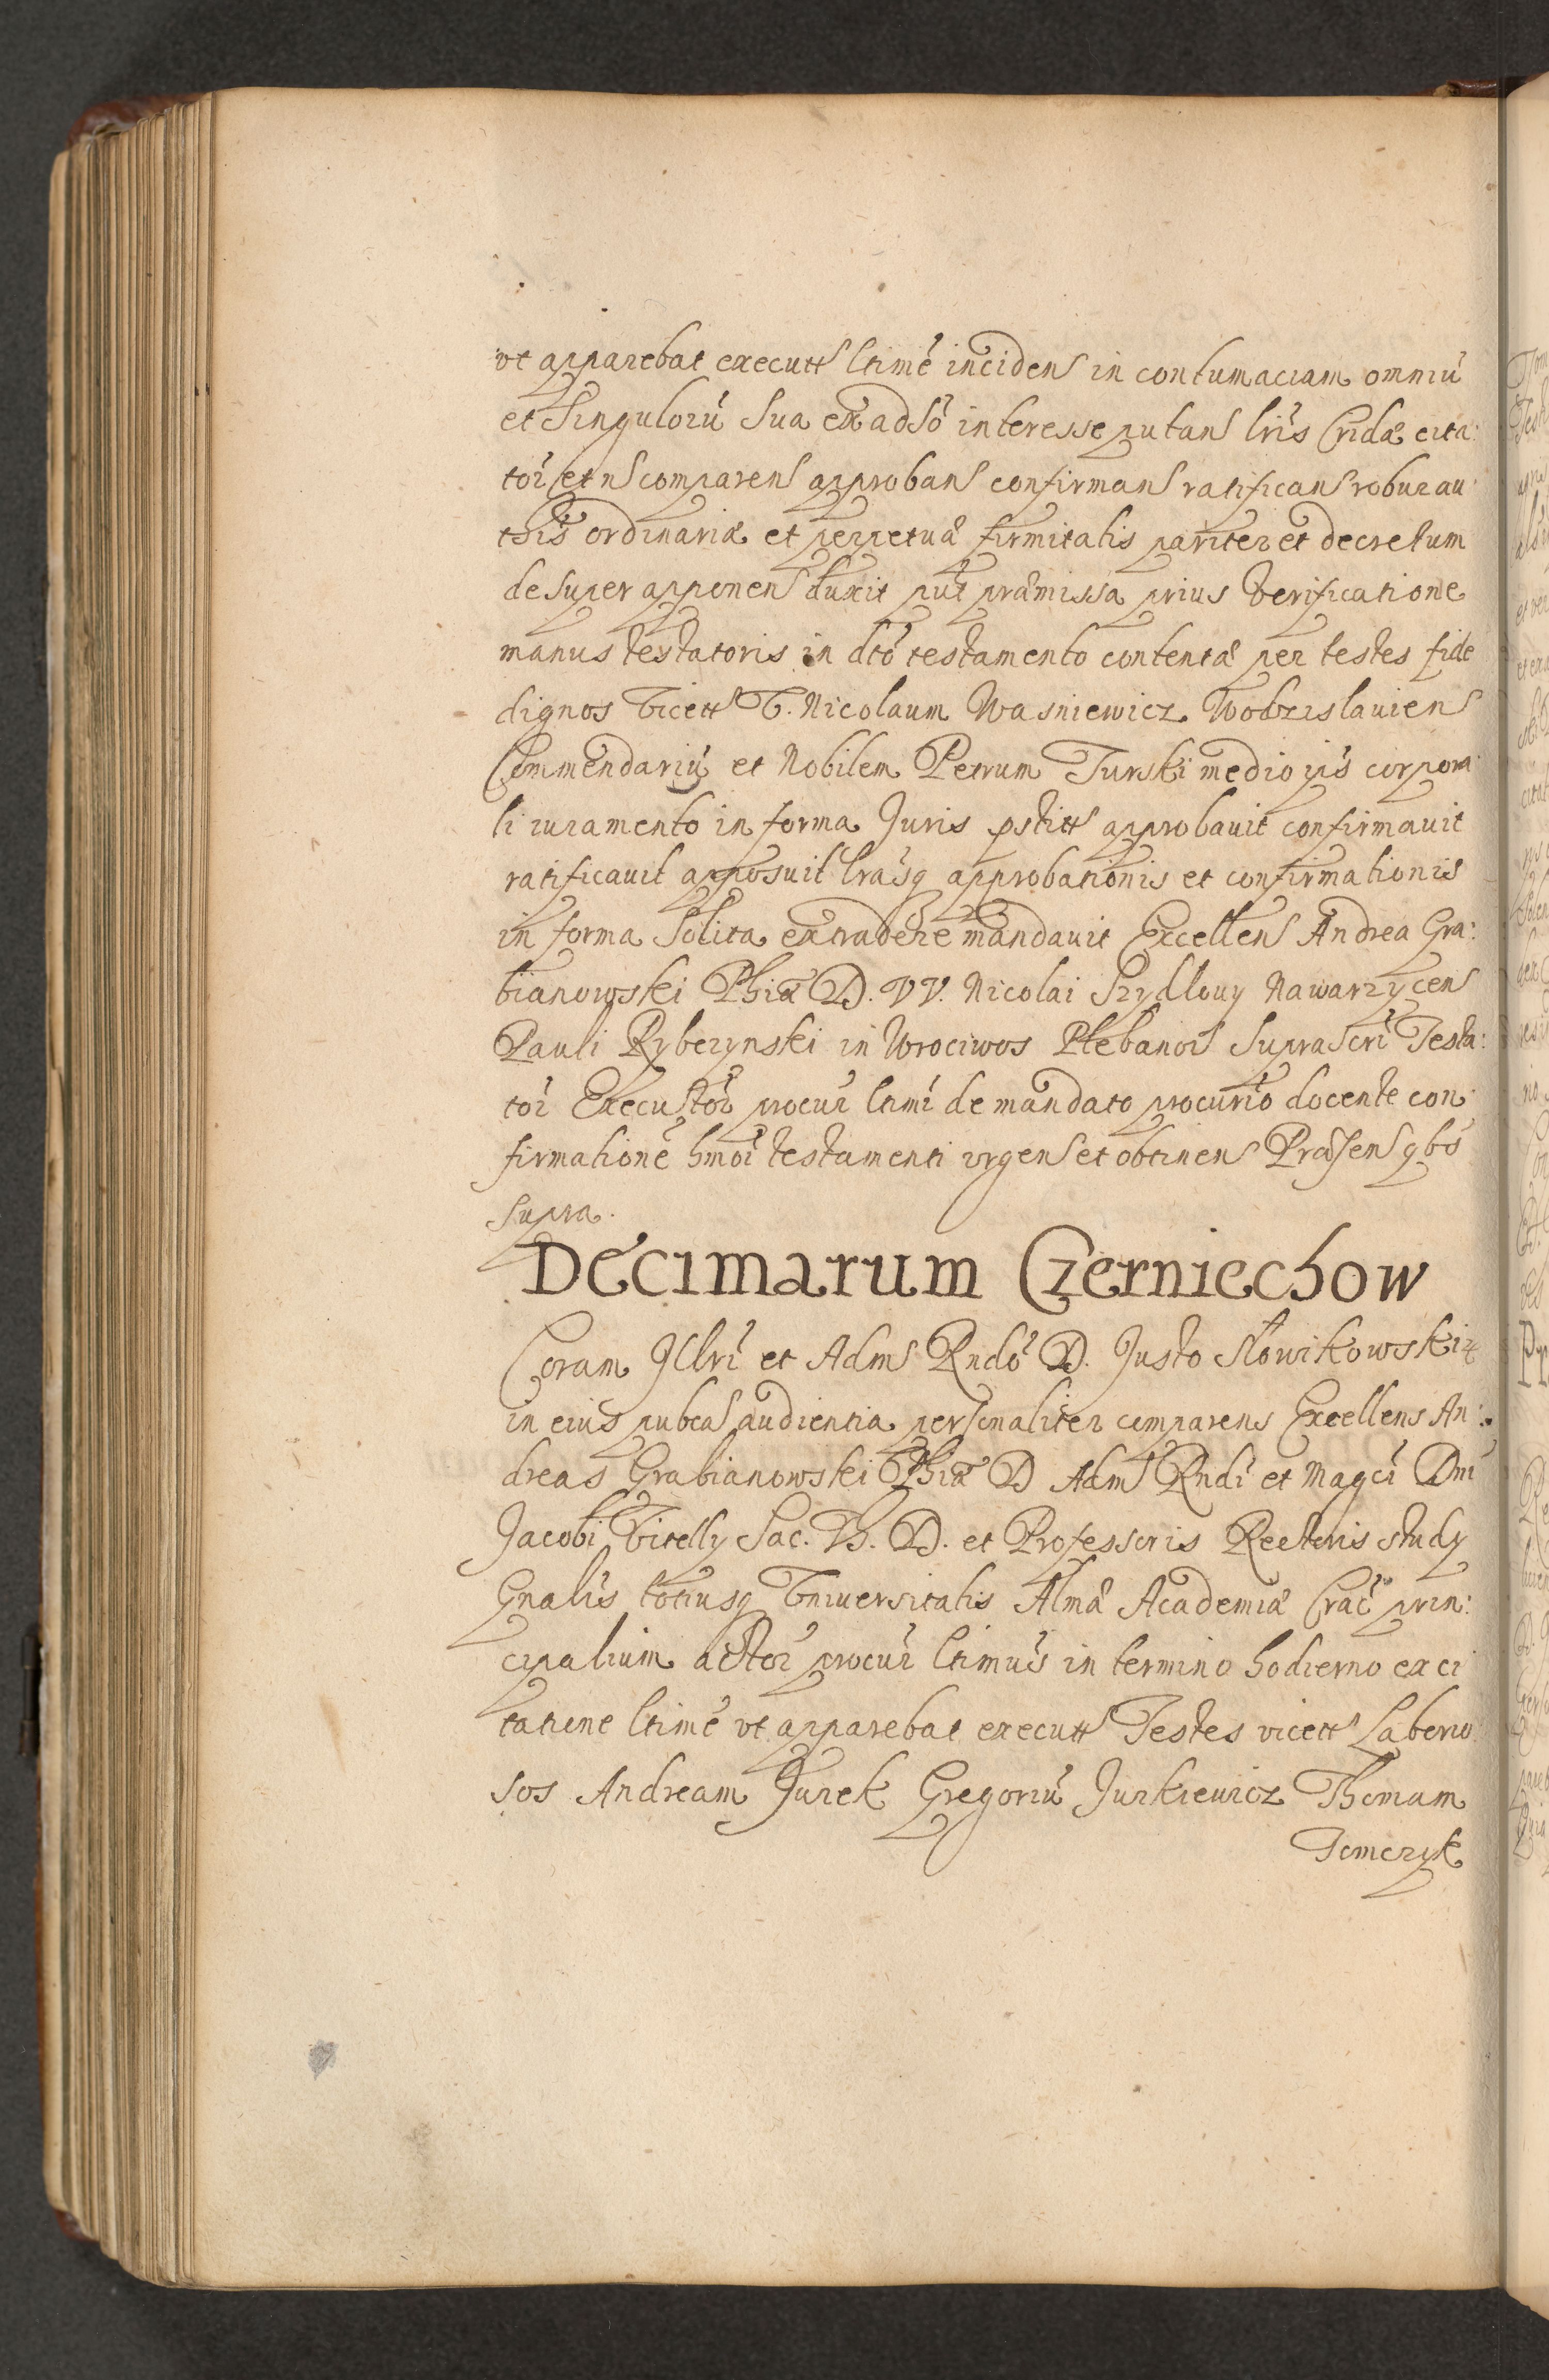 vt apparebat executt ltimē incidens in contumaciam omniū
et singulorū sua ex adsō interesse putans lrīs Cridæ cita:
tor̄ et n comparens approbans confirmans ratificans robur au:
thīs ordinariæ et perpetuæ firmitatis pariter et decretum
desuper apponens duxit put præmissa prius Verificatione
manus testatoris in dtō testamento contentæ per testes fide
dignos Vicett V. Nicolaum Wasniewicz Wodzislauiens
Commendariū et Nobilem Petrum Turski medio ipīs corpora
li iuramento in forma Juris pstitt approbauit confirmauit
ratificauit apposuit lrāsq approbationis et confirmationis
in forma solita extradere mandauit Excellens Andrea Gra:
bianowski Phiæ D. VV. Nicolai Szydlouy Nawarzycens
Pauli Ryberynski in Wrociwos Plebanor̄ suprascrī Testa:
tor̄ Executor̄ procur̄ ltimī de mandato procurīo docente con
firmationē hmōi testamenti vrgens et obtinens Præsen qbō
supra.
Decimarum Czerniechow
Coram Jllrī et Adm Rndō D. Justo Słowikowski
in eius pubca audientia personaliter comparens Excellens An:
dreas Grabianowski Phiæ D Adm Rndī et Magcī Dni
Jacobi Vitelly Sac. Th. D. et Professoris Rectoris study
Gnalīs totiusq Vniuersitatis Almæ Academiæ Crac̄ prin:
cipalium actor̄ procur̄ ltimus in termino hodierno ex ci
tatione ltimē vt apparebat executt Testes vicett Laborio
sos Andream Jurek Gregoriū Jurkiewicz Thomam
Tomczyk